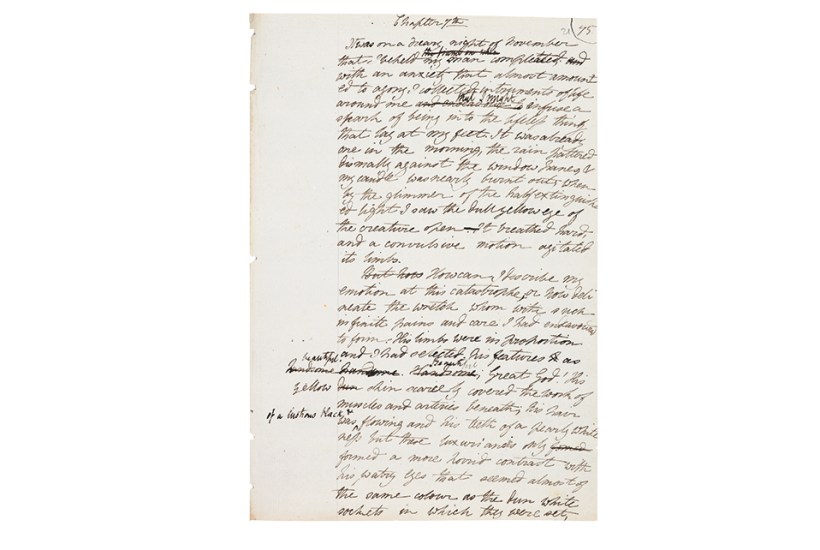 Chapter 7th
75
It was on a dreary night of November
the frame on whic
that I beheld my man compleated and
with an anxiety that almost amount
ed to agony, I collected instruments of life
that I might
around me and endeavour to infuse a
spark of being into the lifeless thing
that lay at my feet. It was already
one in the morning, the rain pattered
dismally against the window panes, &
my candle was nearly burnt out, when
by the glimmer of the half extinguish
ed light I saw the dull yellow eye of
the creature open. It breathed hard,
and a convulsive motion agitated
its limbs.
But how How can I describe my
emotion at this catastrophe, or how deli
neate the wretch whom with such
infinite pains and care I had endeavoured
to form. His limbs were in proportion
and I had selected his features as
beautiful
handsome handsome. Handsome, Great God! His
yellow dun skin scarcely covered the work of
muscles and arteries beneath, his hair
of a lustrous black, &
was flowing and his teeth of a pearly white
ness but these luxuriances only
formed a more horrid contrast with
his watry eyes that seemed almost of
the same colour as the dun white
sockets in which they were set,